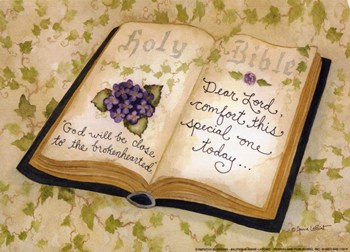 Holy Bible
"God will be close
to the brokenhearted"
Dear Lord,
comfort this
special one
today...